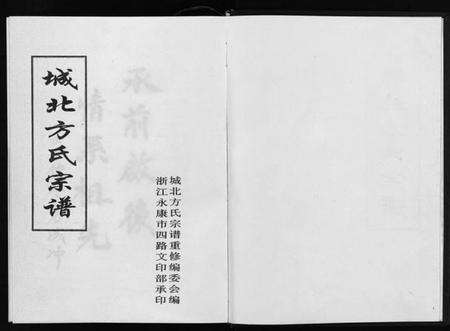 城北方氏宗谱
城北方氏宗谱重修编委会编
浙江永康市四路文印部承印
承前啟後